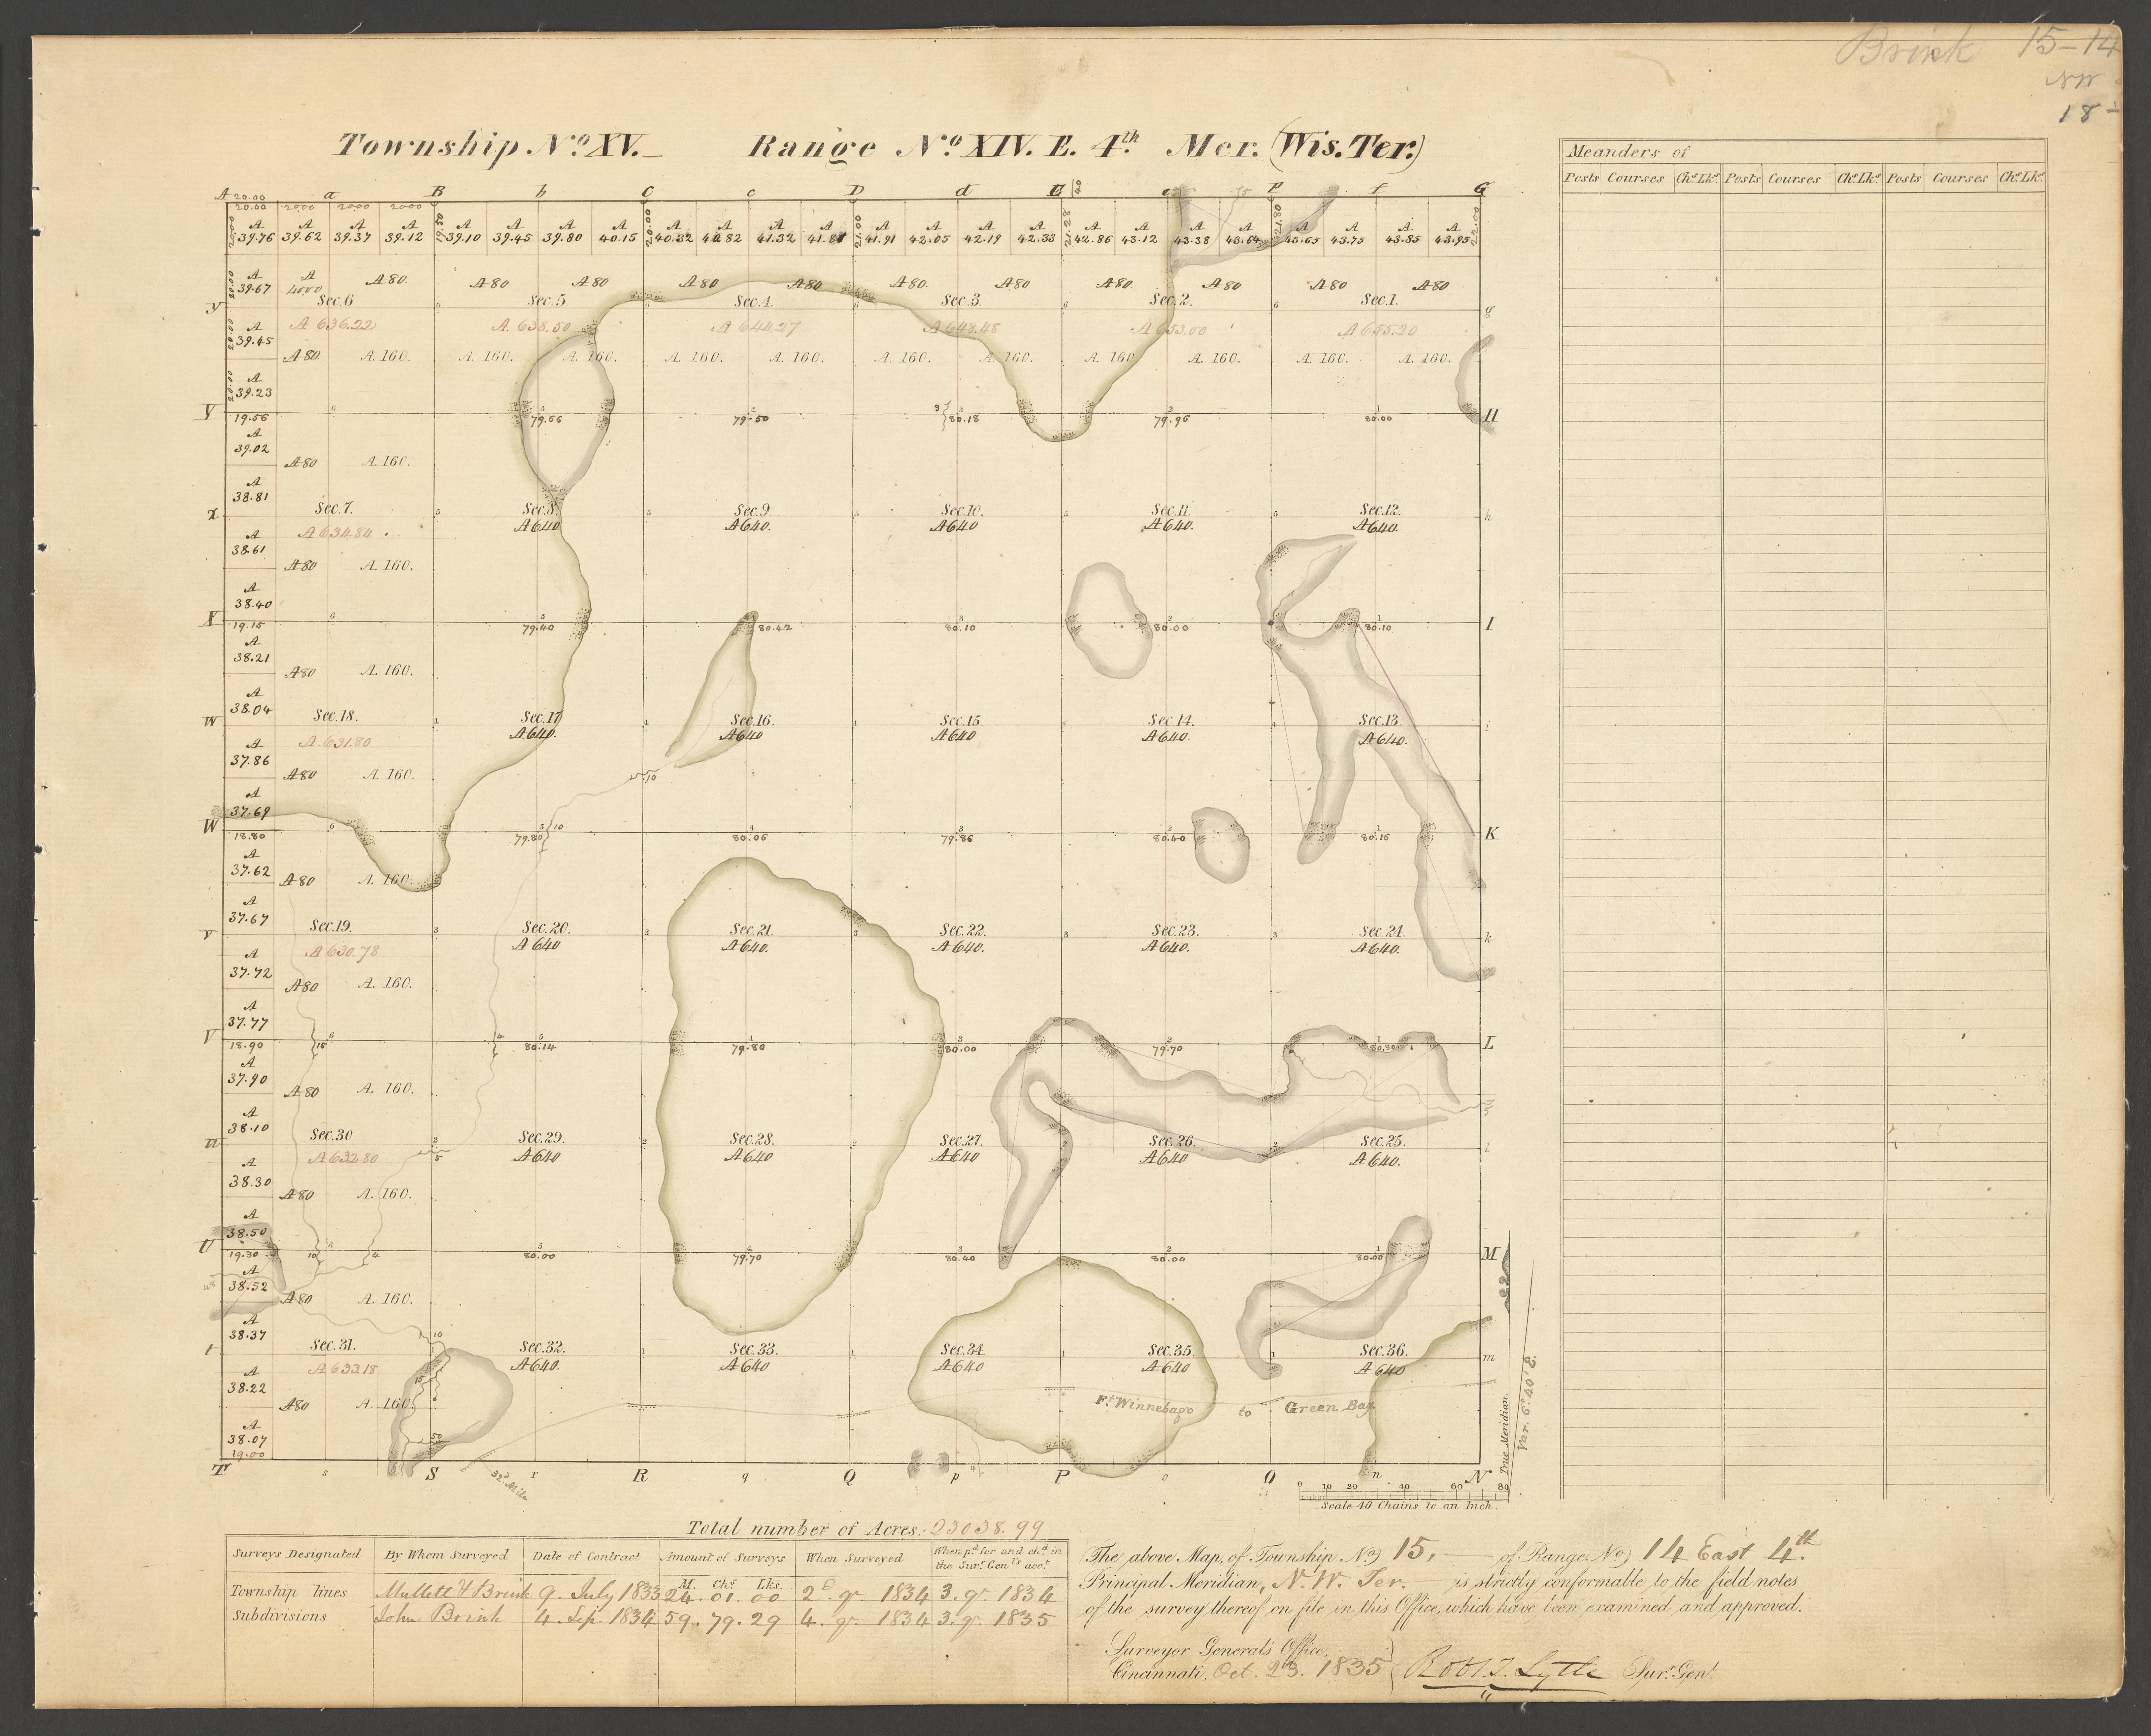 Brink 15-14
NW
18-
Township No. XV. Range No. XIV. E. 4th Mer. (Wis. Ter.)
Meanders of
Posts Courses Chs. Lks. Posts Courses Chs. Lks. Posts Courses Chs. Lks.
A 20.00 a B b C c D d E e F f G
20.00 2000 2000 2000
A A A A A A A A A A A A A A A A A A A A A A A A
39.76 39.62 39.37 39.12 39.10 39.45 39.80 40.15 40.32 40.82 41.32 41.81 41.91 42.05 42.19 42.33 42.86 43.12 43.38 43.64 43.65 43.75 43.85 43.95
19.50 20.00 21.00 21.28 21.80 22.00
A A A80 A80 A80 A80 A80 A80 A80 A80 A80 A80 A80
39.67 4000
y Sec. 6 Sec. 5 Sec. 4. Sec. 3. Sec. 2. Sec. 1. g
A 636.22 A. 638.50 A 644.27 A 648.48 A 653.00 A 655.20
A
39.45
A80 A. 160. A. 160. A. 160. A. 160. A. 160. A. 160. A. 160. A. 160. A. 160. A. 160. A. 160.
A
39.23
Y 19.56 79.66 79.50 80.18 79.96 80.00 H
A
39.02
A80 A. 160.
A
38.81
x Sec. 7. Sec. 8. Sec. 9. Sec. 10. Sec. 11. Sec. 12. h
A 634.84 A 640 A 640. A 640 A 640. A 640.
A
38.61
A80 A. 160.
A
38.40
X 19.15 79.40 80.42 80.10 80.00 80.10 I
A
38.21
A80 A. 160.
A
38.04
w Sec. 18. Sec. 17 Sec. 16. Sec. 15 Sec. 14. Sec. 13 i
A 631.80 A 640. A 640 A 640 A 640. A 640.
A
37.86
A80 A. 160.
10
A
37.69
W 18.80 79.80 10 80.06 79.86 80.40 80.16 K
A
37.62
A80 A. 160.
A
37.67
v Sec. 19. Sec. 20. Sec. 21. Sec. 22. Sec. 23. Sec. 24. k
A 630.78 A 640 A 640. A 640. A 640. A 640.
A
37.72
A80 A. 160.
A
37.77
V 18.90 15 80.14 79.80 80.00 79.70 80.30 L
A
37.90
A80 A. 160.
A
38.10
u Sec. 30 Sec. 29. Sec. 28. Sec. 27. Sec. 26. Sec. 25. l
A 632.80 A 640 A 640 A 640 A 640 A 640.
A
38.30
A80 A. 160.
A
38.50
U 19.30 10 4 80.00 79.70 80.40 80.00 80.00 M
A
38.52
A80 A. 160.
A
38.37
Sec. 31. Sec. 32. Sec. 33. Sec. 34. Sec. 35. Sec. 36. m
A 633.18 A 640. A 640 A 640 A 640 A 640
A
38.22
A80 A. 160.
Ft. Winnebago to Green Bay
A
38.07
19.00 50
T s S r R q Q p P o O n N
32d. Mile
True Meridian.
Var. 6° 40' E.
0 10 20 40 60 80
Scale 40 Chains to an Inch.
Total number of Acres. 23038.99
Surveys Designated By Whom Surveyed Date of Contract Amount of Surveys When Surveyed When pd. for and chd. in the Surr. Genls. acct.
M. Chs. Lks.
Township lines Mullett & Brink 9. July 1833 24. 01. 00 2d. qr. 1834 3. qr. 1834
Subdivisions John Brink 4. Sep. 1834 59. 79. 29 4. qr. 1834 3. qr. 1835
The above Map, of Township No. 15, of Range No. 14 East 4th.
Principal Meridian, N. W. Ter. is strictly conformable to the field notes
of the survey thereof on file in this Office, which have been examined and approved.
Surveyor General's Office,
Cincinnati, Oct. 23. 1835 Robt. T. Lytle Surr. Genl.